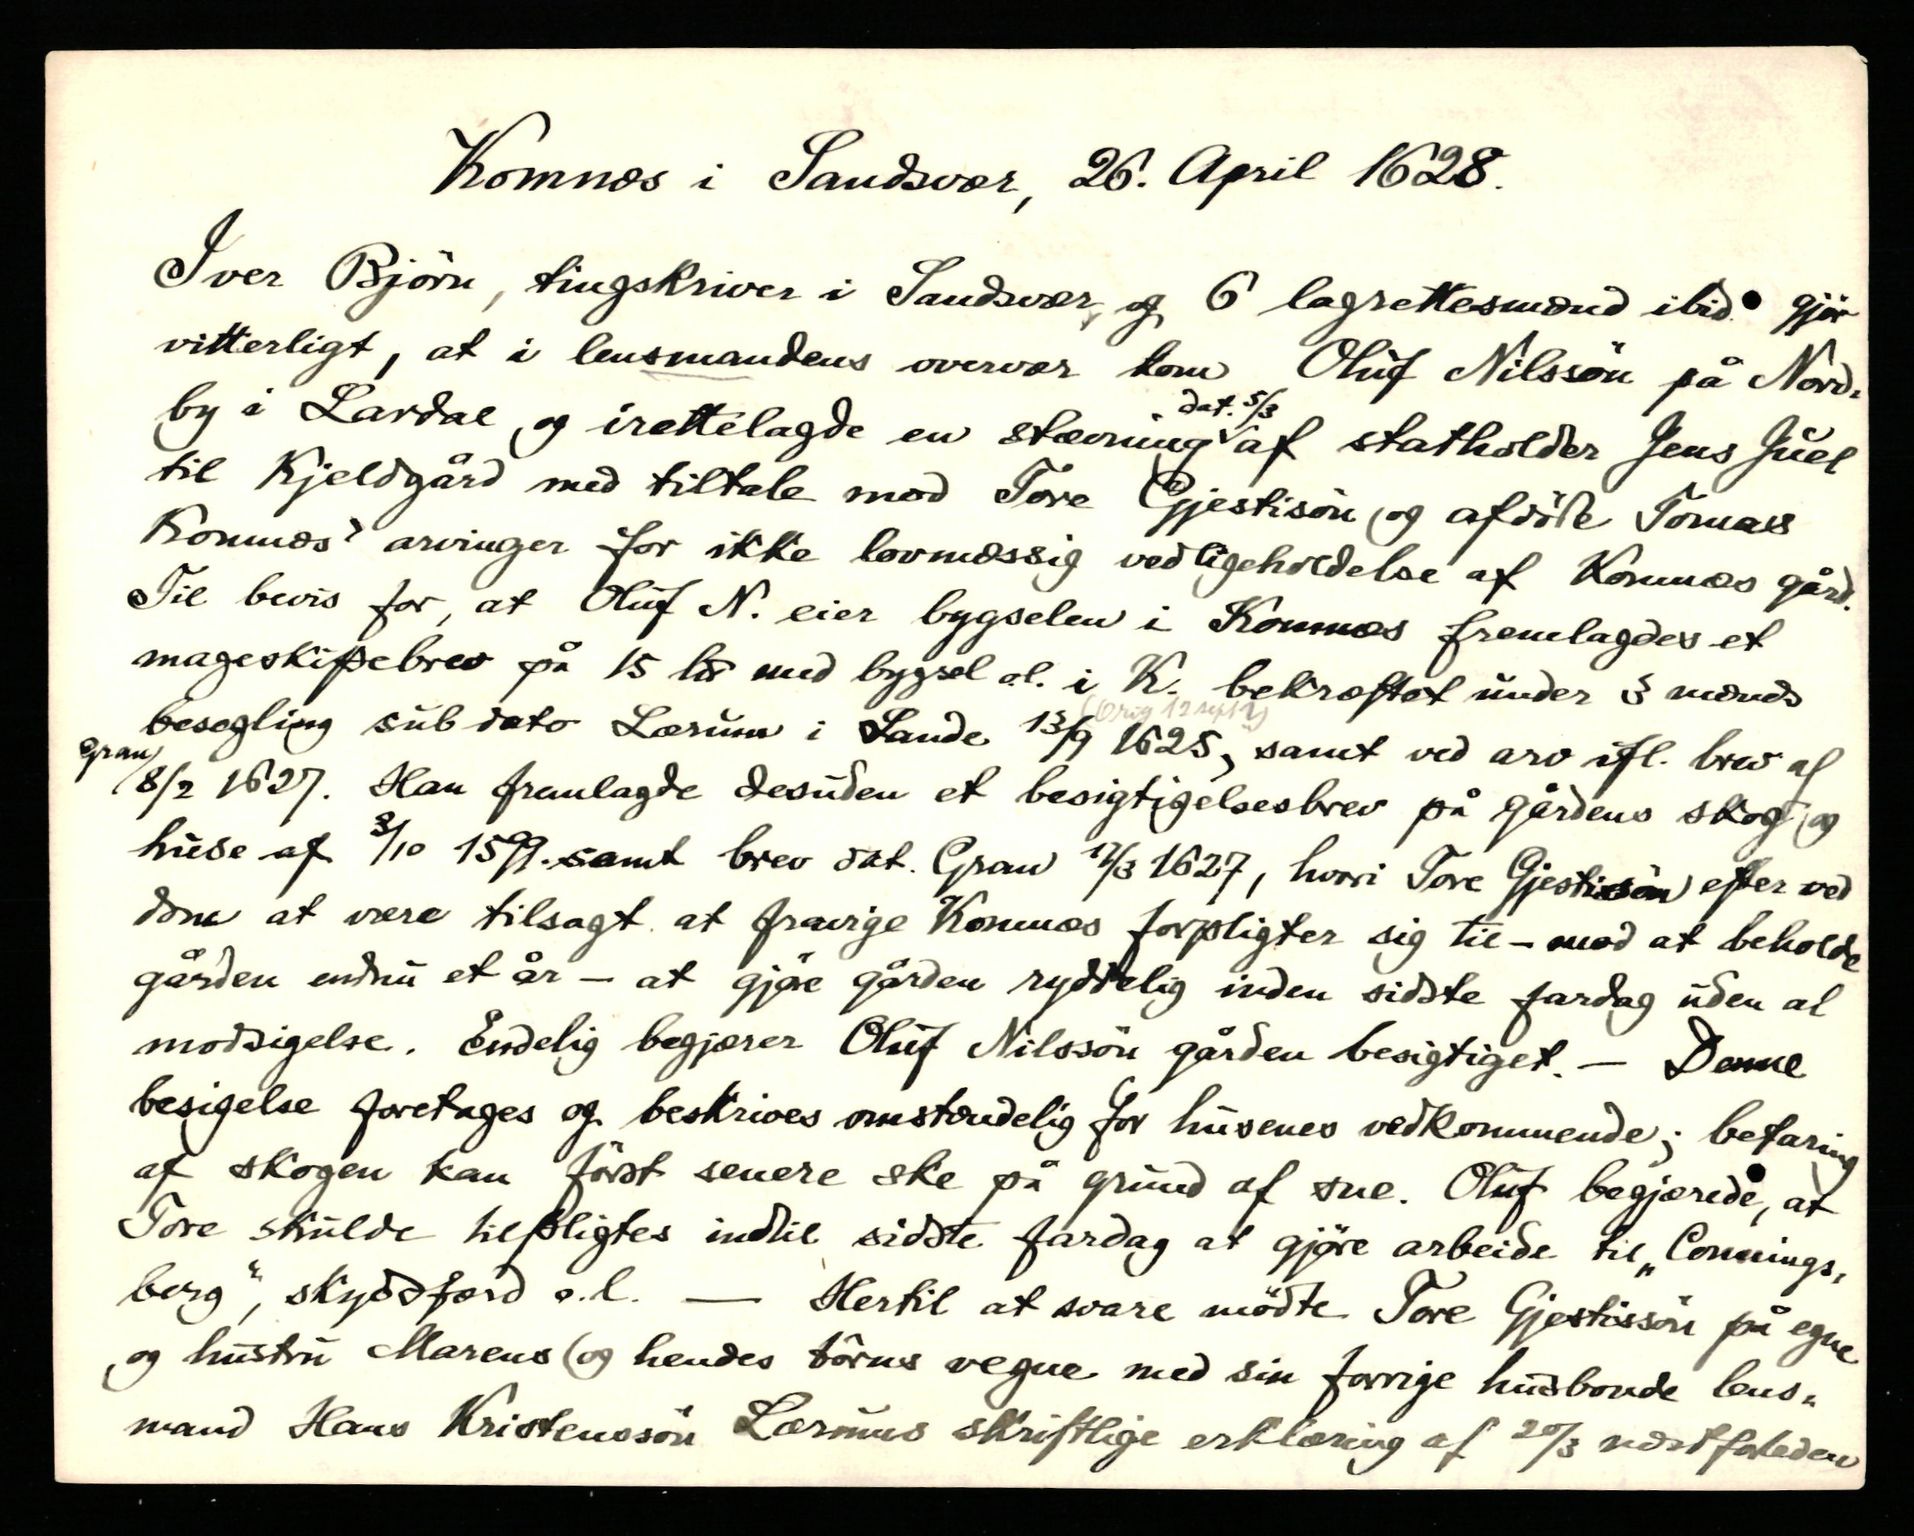 Komnæs i Sandsvær, 26. April 1628.
Iver Björn, tingskriver i Sandsvær, og 6 lagrettesmænd ibid. gjör
vitterligt, at i lensmandens overvær kom Oluf Nilssön på Nord-
by i Lardal og irettelagde en stævning dat. 5/3 af statholder Jens Juel
til Kjeldgård med tiltale mod Tore Gjestisön og afdöde Tomas
Komnæs' arvinger for ikke lovmæssig vedligeholdelse af Komnæs gård.
Til bevis for, at Oluf N. eier bygselen i Komnæs fremlagdes et
mageskiftebrev på 15 lis med bygsel o.l. i K. bekræftet under 3 mænds
(Orig 12 sept)
besegling sub dato Lærum i Sande 13/9 1625, samt ved arv ifl. brev af
Gran 8/2 1627. Han fremlagde desuden et besigtigelsesbrev på gårdens skog og
huse af 3/10 1599. samt brev dat. Gran 12/3 1627, hvori Tore Gjestissön efter ved
dom at være tilsagt at fravige Komnæs forpligter sig til – mod at beholde
gården endnu et år – at gjöre gården ryddelig inden sidste fardag uden al
modsigelse. Endelig begjærer Oluf Nilssön gården besigtiget. — Denne
besigelse foretages og beskrives omstændelig for husenes vedkommende; befaring
af skogen kan först senere ske på grund af sne. Oluf begjærede, at
Tore skulde tilpligtes indtil sidste fardag at gjöre arbeide til „Connings-
berg“, skydsfærd o.l. — Hertil at svare mödte Tore Gjestissön på egne
og hustru Marens (og hendes börns vegne med sin forrige husbonde lens-
mand Hans Kristenssön Lærums skriftlige erklæring af 20/3 næstforleden